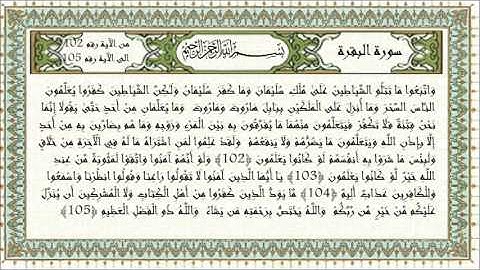 سورة البقرة
بسم الله الرحمن الرحيم
من الآية رقم 102
الى الآية رقم 105
وَاتَّبَعُوا مَا تَتْلُو الشَّيَاطِينُ عَلَىٰ مُلْكِ سُلَيْمَانَ وَمَا كَفَرَ سُلَيْمَانُ وَلَٰكِنَّ الشَّيَاطِينَ كَفَرُوا يُعَلِّمُونَ
النَّاسَ السِّحْرَ وَمَا أُنزِلَ عَلَى الْمَلَكَيْنِ بِبَابِلَ هَارُوتَ وَمَارُوتَ وَمَا يُعَلِّمَانِ مِنْ أَحَدٍ حَتَّىٰ يَقُولَا إِنَّمَا
نَحْنُ فِتْنَةٌ فَلَا تَكْفُرْ فَيَتَعَلَّمُونَ مِنْهُمَا مَا يُفَرِّقُونَ بِهِ بَيْنَ الْمَرْءِ وَزَوْجِهِ وَمَا هُم بِضَارِّينَ بِهِ مِنْ أَحَدٍ
إِلَّا بِإِذْنِ اللَّهِ وَيَتَعَلَّمُونَ مَا يَضُرُّهُمْ وَلَا يَنفَعُهُمْ وَلَقَدْ عَلِمُوا لَمَنِ اشْتَرَاهُ مَا لَهُ فِي الْآخِرَةِ مِنْ خَلَاقٍ
وَلَبِئْسَ مَا شَرَوْا بِهِ أَنفُسَهُمْ لَوْ كَانُوا يَعْلَمُونَ ﴿102﴾ وَلَوْ أَنَّهُمْ آمَنُوا وَاتَّقَوْا لَمَثُوبَةٌ مِّنْ عِندِ
اللَّهِ خَيْرٌ لَّوْ كَانُوا يَعْلَمُونَ ﴿103﴾ يَا أَيُّهَا الَّذِينَ آمَنُوا لَا تَقُولُوا رَاعِنَا وَقُولُوا انظُرْنَا وَاسْمَعُوا
وَلِلْكَافِرِينَ عَذَابٌ أَلِيمٌ ﴿104﴾ مَّا يَوَدُّ الَّذِينَ كَفَرُوا مِنْ أَهْلِ الْكِتَابِ وَلَا الْمُشْرِكِينَ أَن يُنَزَّلَ
عَلَيْكُم مِّنْ خَيْرٍ مِّن رَّبِّكُمْ وَاللَّهُ يَخْتَصُّ بِرَحْمَتِهِ مَن يَشَاءُ وَاللَّهُ ذُو الْفَضْلِ الْعَظِيمِ ﴿105﴾